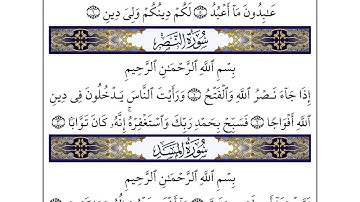 عَـٰبِدُونَ مَآ أَعْبُدُ ۝٥ لَكُمْ دِينُكُمْ وَلِىَ دِينِ ۝٦
سُورَةُ النَّصۡرِ
بِسۡمِ ٱللَّهِ ٱلرَّحۡمَـٰنِ ٱلرَّحِيمِ
إِذَا جَآءَ نَصۡرُ ٱللَّهِ وَٱلۡفَتۡحُ ۝١ وَرَأَيۡتَ ٱلنَّاسَ يَدۡخُلُونَ فِى دِينِ
ٱللَّهِ أَفۡوَاجًا ۝٢ فَسَبِّحۡ بِحَمۡدِ رَبِّكَ وَٱسۡتَغۡفِرۡهُ ۚ إِنَّهُۥ كَانَ تَوَّابًۢا ۝٣
سُورَةُ المَسَد
بِسۡمِ ٱللَّهِ ٱلرَّحۡمَـٰنِ ٱلرَّحِيمِ